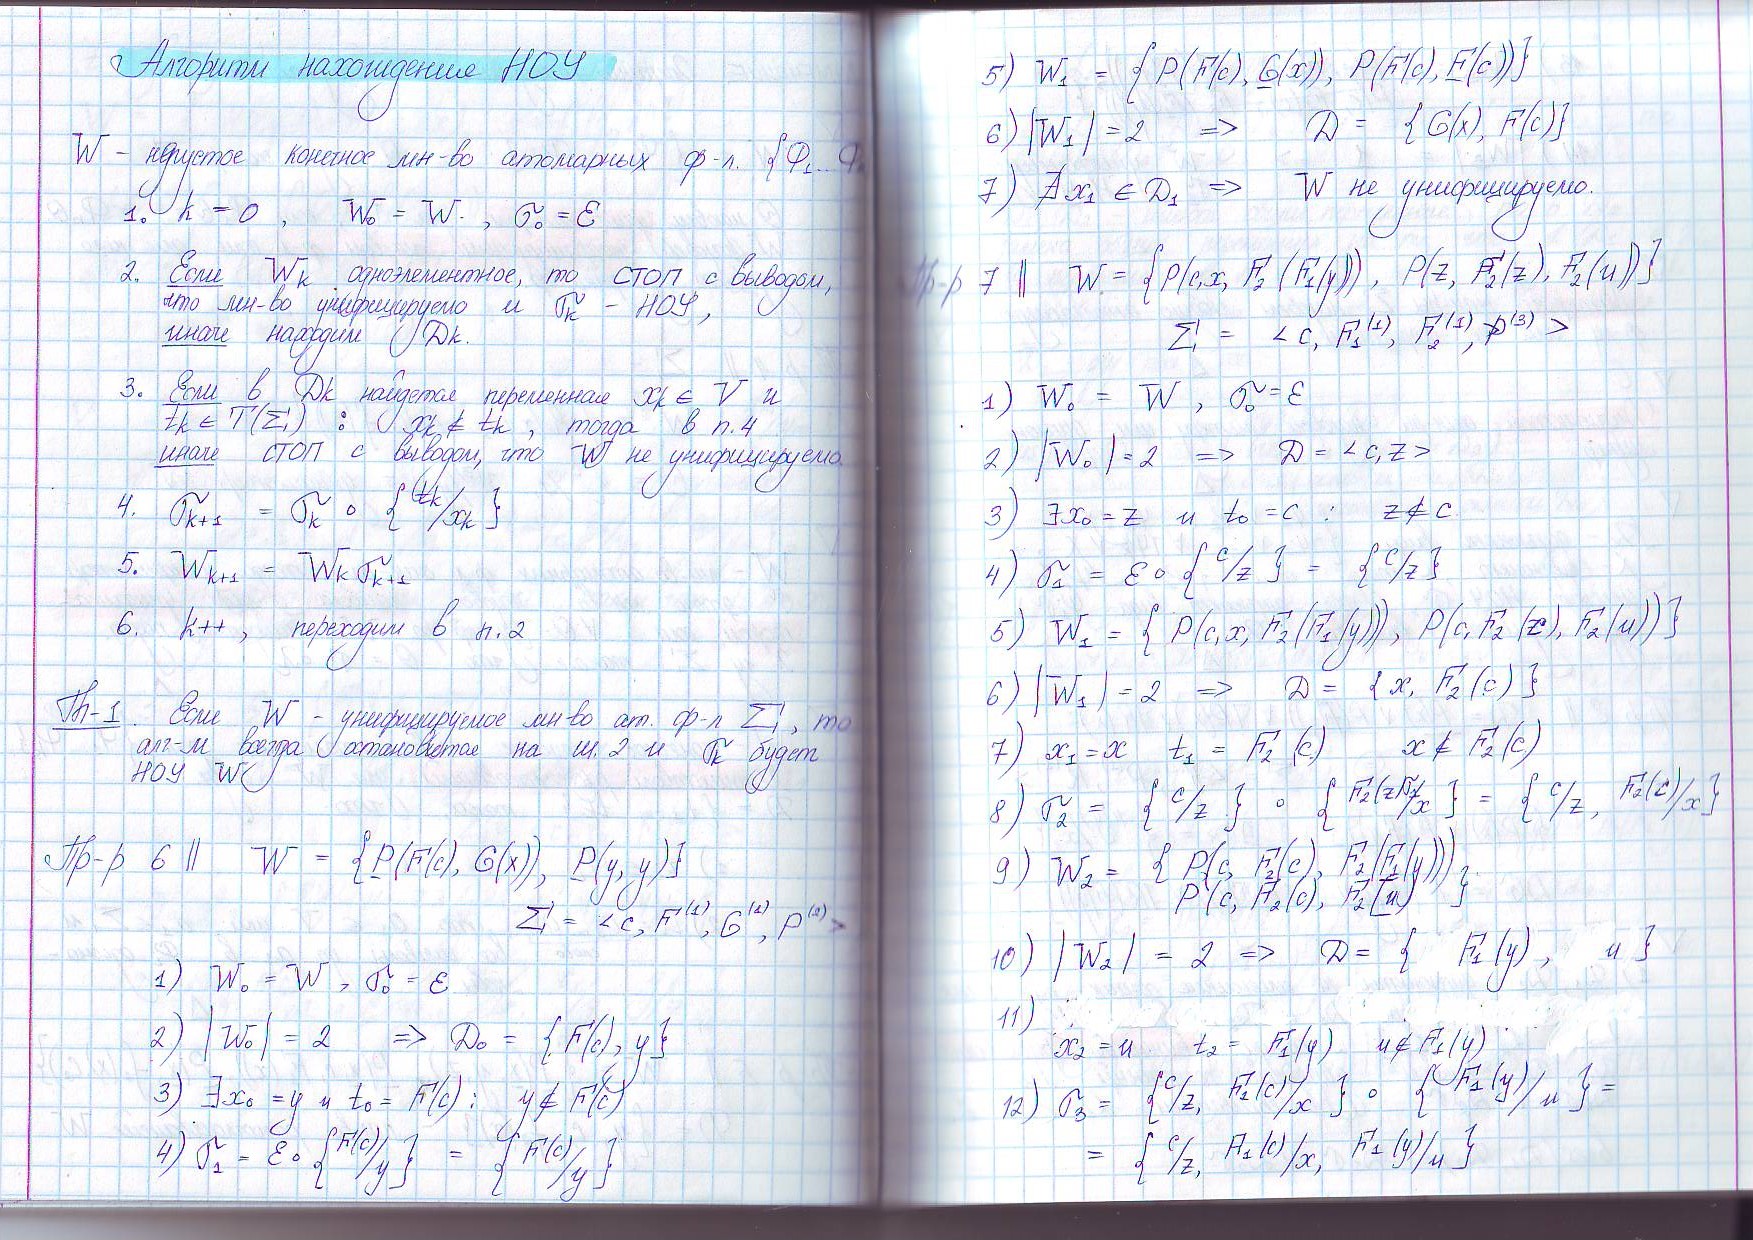 Алгоритм нахождения НОУ
W – непустое конечное мн-во атомарных ф-л. {Φ₁...Φ
1. k = 0, W₀ = W, σ₀ = ε
2. Если Wk одноэлементное, то СТОП с выводом,
что мн-во унифицируемо и σk – НОУ,
иначе находим Dk.
3. Если в Dk найдется переменная xk ∈ V и
tk ∈ T(Σ) : xk ∉ tk, тогда в п.4
иначе СТОП с выводом, что W не унифицируемо
4. σk+1 = σk ∘ {tk/xk}
5. Wk+1 = Wk σk+1
6. k++, переходим в п.2
Th-1. Если W – унифицируемое мн-во ат. ф-л Σ, то
алг-м всегда остановится на ш.2 и σk будет
НОУ W
Пр-р 6 || W = {P(F(c), G(x)), P(y, y)}
Σ = <c, F⁽¹⁾, G⁽¹⁾, P⁽²⁾>
1) W₀ = W, σ₀ = ε
2) |W₀| = 2 => D₀ = {F(c), y}
3) ∃x₀ = y и t₀ = F(c) : y ∉ F(c)
4) σ₁ = ε ∘ {F(c)/y} = {F(c)/y}
5) W₁ = {P(F(c), G(x)), P(F(c), F(c))}
6) |W₁| = 2 => D = {G(x), F(c)}
7) ∄x₁ ∈ D₁ => W не унифицируемо.
Пр-р 7 || W = {P(c, x, F₂(F₁(y))), P(z, F₂(z), F₂(u))}
Σ = <c, F₁⁽¹⁾, F₂⁽¹⁾, P⁽³⁾>
1) W₀ = W, σ₀ = ε
2) |W₀| = 2 => D = <c, z>
3) ∃x₀ = z и t₀ = c : z ∉ c
4) σ₁ = ε ∘ {c/z} = {c/z}
5) W₁ = {P(c, x, F₂(F₁(y))), P(c, F₂(c), F₂(u))}
6) |W₁| = 2 => D = {x, F₂(c)}
7) x₁ = x t₁ = F₂(c) x ∉ F₂(c)
8) σ₂ = {c/z} ∘ {F₂(z)/x} = {c/z, F₂(c)/x}
9) W₂ = {P(c, F₂(c), F₂(F₁(y))),
P(c, F₂(c), F₂(u)}
10) |W₂| = 2 => D = {F₁(y), u}
11)
x₂ = u t₂ = F₁(y) u ∉ F₁(y)
12) σ₃ = {c/z, F₁(c)/x} ∘ {F₁(y)/u} =
= {c/z, F₁(c)/x, F₁(y)/u}